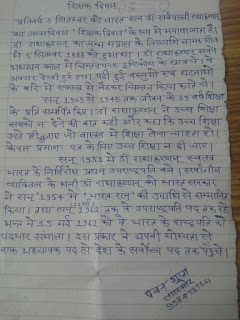 शिक्षक दिवस
प्रतिवर्ष 5 सितम्बर को भारत रत्न डॉ सर्वपल्ली राधाकृष्णन
का जन्मदिवस "शिक्षक दिवस" के रूप में मनाया जाता है।
डॉ राधाकृष्णन का जन्म मद्रास के तिरूतनि नामक गाँव
में 5 सितम्बर 1888 को हुआ था। डॉ राधाकृष्णन अपने
अध्ययन काल में
अक्सर देखी हुई तथा पढ़ी हुई वस्तुओं एवं घटनाओं
के बारे में एकान्त में बैठकर चिन्तन किया करते थे।
सन् 1909 से 1948 तक जीवन के 39 वर्ष शिक्षा
के प्रति समर्पित किए। डॉ राधाकृष्णन ने उच्च शिक्षा
सबको न देने की बात कही और कहा कि उच्च शिक्षा
उसे दी जाए जो वास्तव में शिक्षा लेना चाहता हो।
केवल प्रमाण पत्र के लिए उच्च शिक्षा न दी जाए।
सन् 1952 में डॉ राधाकृष्णन, स्वतंत्र
भारत के निर्विरोध प्रथम उपराष्ट्रपति बने।
व्यक्तित्व के धनी डॉ राधाकृष्णन को भारत सरकार
ने सन् 1954 में "भारत रत्न" की उपाधि से सम्मानित
किया। तथा सन् 1962 तक वे उपराष्ट्रपति पद तक रहे
अन्त में 15 मई 1962 को वे भारत के राष्ट्रपति का
पदभार संभाला। इस प्रकार वे अपनी योग्यता से
एक अध्यापक पद से देश के सर्वोच्च पद तक पहुँचे।
पवन